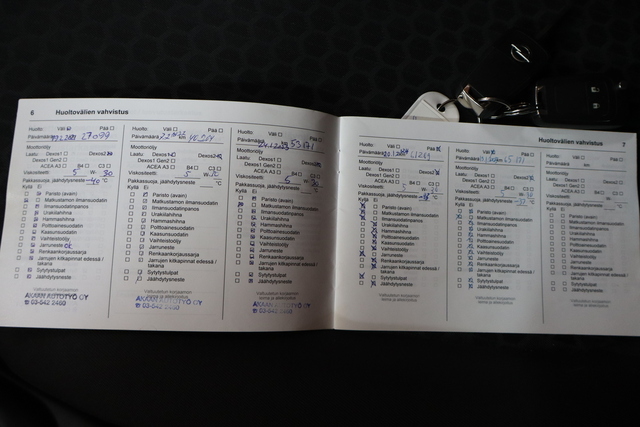 6 Huoltovälien vahvistus
Huolto: Väli Pää
Päivämäärä 27099
Moottoriöljy
Laatu: Dexos1 Dexos2
Dexos1 Gen2
ACEA A3 B4 C3
Viskositeetti 5 W- 30
Pakkassuoja, jäähdytysneste -40 °C
Kyllä Ei
Paristo (avain)
Matkustamon ilmansuodatin
Ilmansuodatinpanos
Urakilahihna
Hammashihna
Polttoainesuodatin
Kaasunsuodatin
Vaihteistoöljy
Jarruneste OK
Renkaankorjaussarja
Jarrujen kitkapinnat edessä /
takana
Sytytystulpat
Jäähdytysneste
Valtuutetun korjaamon
leima ja allekirjoitus
AKAAN AUTOTYÖ OY
☎ 03-542 2460
Huolto: Väli Pää
Päivämäärä km
Moottoriöljy
Laatu: Dexos1 Dexos2
Dexos1 Gen2
ACEA A3 B4 C3
Viskositeetti 5 W-
Pakkassuoja, jäähdytysneste °C
Kyllä Ei
Paristo (avain)
Matkustamon ilmansuodatin
Ilmansuodatinpanos
Urakilahihna
Hammashihna
Polttoainesuodatin
Kaasunsuodatin
Vaihteistoöljy
Jarruneste
Renkaankorjaussarja
Jarrujen kitkapinnat edessä /
takana
Sytytystulpat
Jäähdytysneste
Valtuutetun korjaamon
leima ja allekirjoitus
AKAAN AUTOTYÖ OY
☎ 03-542 2460
Huolto: Väli Pää
Päivämäärä
Moottoriöljy
Laatu: Dexos1 Dexos2
Dexos1 Gen2
ACEA A3 B4 C3
Viskositeetti 5 W-
Pakkassuoja, jäähdytysneste °C
Kyllä Ei
Paristo (avain)
Matkustamon ilmansuodatin
Ilmansuodatinpanos
Urakilahihna
Hammashihna
Polttoainesuodatin
Kaasunsuodatin
Vaihteistoöljy
Jarruneste
Renkaankorjaussarja
Jarrujen kitkapinnat edessä /
takana
Sytytystulpat
Jäähdytysneste
Valtuutetun korjaamon
leima ja allekirjoitus
AKAAN AUTOTYÖ OY
☎ 03-542 2460
Huoltovälien vahvistus 7
Huolto: Väli Pää
Päivämäärä
Moottoriöljy
Laatu: Dexos1 Dexos2
Dexos1 Gen2
ACEA A3 B4 C3
Viskositeetti 5 W-
Pakkassuoja, jäähdytysneste °C
Kyllä Ei
Paristo (avain)
Matkustamon ilmansuodatin
Ilmansuodatinpanos
Urakilahihna
Hammashihna
Polttoainesuodatin
Kaasunsuodatin
Vaihteistoöljy
Jarruneste
Renkaankorjaussarja
Jarrujen kitkapinnat edessä /
takana
Sytytystulpat
Jäähdytysneste
Valtuutetun korjaamon
leima ja allekirjoitus
Huolto: Väli Pää
Päivämäärä
Moottoriöljy
Laatu: Dexos1 Dexos2
Dexos1 Gen2
ACEA A3 B4 C3
Viskositeetti 5 W-
Pakkassuoja, jäähdytysneste °C
Kyllä Ei
Paristo (avain)
Matkustamon ilmansuodatin
Ilmansuodatinpanos
Urakilahihna
Hammashihna
Polttoainesuodatin
Kaasunsuodatin
Vaihteistoöljy
Jarruneste
Renkaankorjaussarja
Jarrujen kitkapinnat edessä /
takana
Sytytystulpat
Jäähdytysneste
Valtuutetun korjaamon
leima ja allekirjoitus
Huolto: Väli Pää
Päivämäärä km
Moottoriöljy
Laatu: Dexos1 Dexos2
Dexos1 Gen2
ACEA A3 B4 C3
Viskositeetti W-
Pakkassuoja, jäähdytysneste °C
Kyllä Ei
Paristo (avain)
Matkustamon ilmansuodatin
Ilmansuodatinpanos
Urakilahihna
Hammashihna
Polttoainesuodatin
Kaasunsuodatin
Vaihteistoöljy
Jarruneste
Renkaankorjaussarja
Jarrujen kitkapinnat edessä /
takana
Sytytystulpat
Jäähdytysneste
Valtuutetun korjaamon
leima ja allekirjoitus